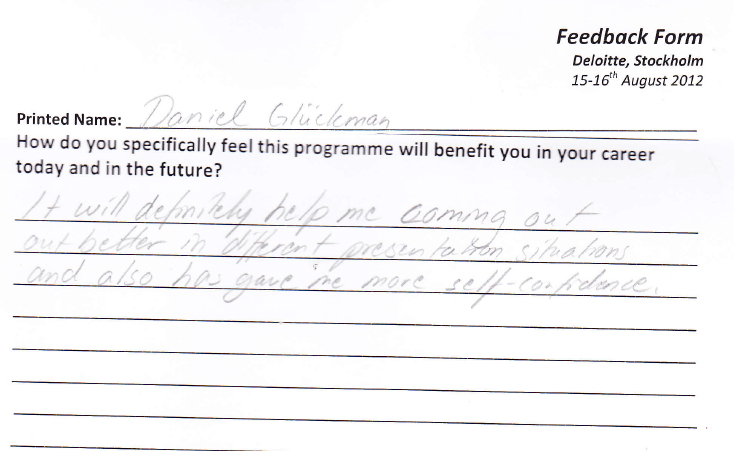 Feedback Form
Deloitte, Stockholm
15-16th August 2012
Printed Name: Daniel Glückman
How do you specifically feel this programme will benefit you in your career
today and in the future?
It will definitely help me coming out
out better in different presentation situations
and also has gave me more self-confidence.